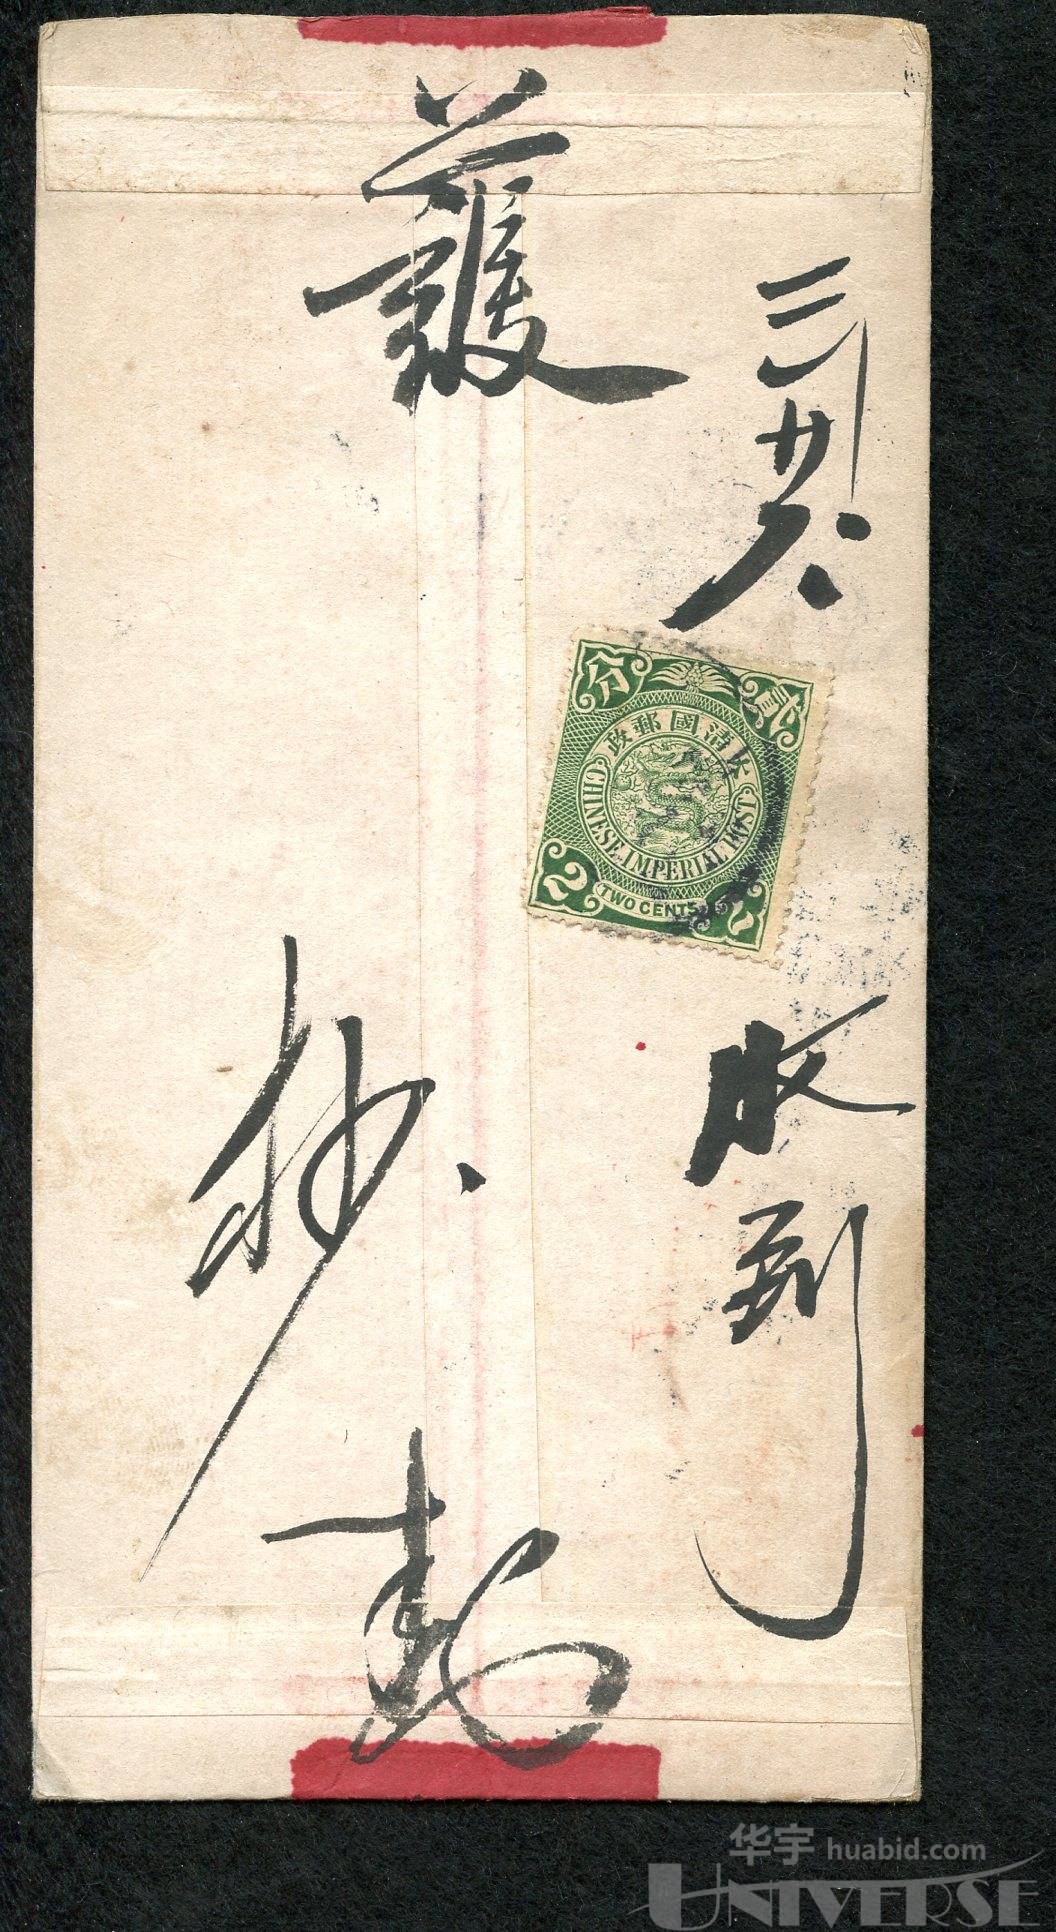 護
三
廿六
收到
貳分
大清國郵政
CHINESE IMPERIAL POST
2
TWO CENTS
2
华宇 huabid.com
UNIVERSE